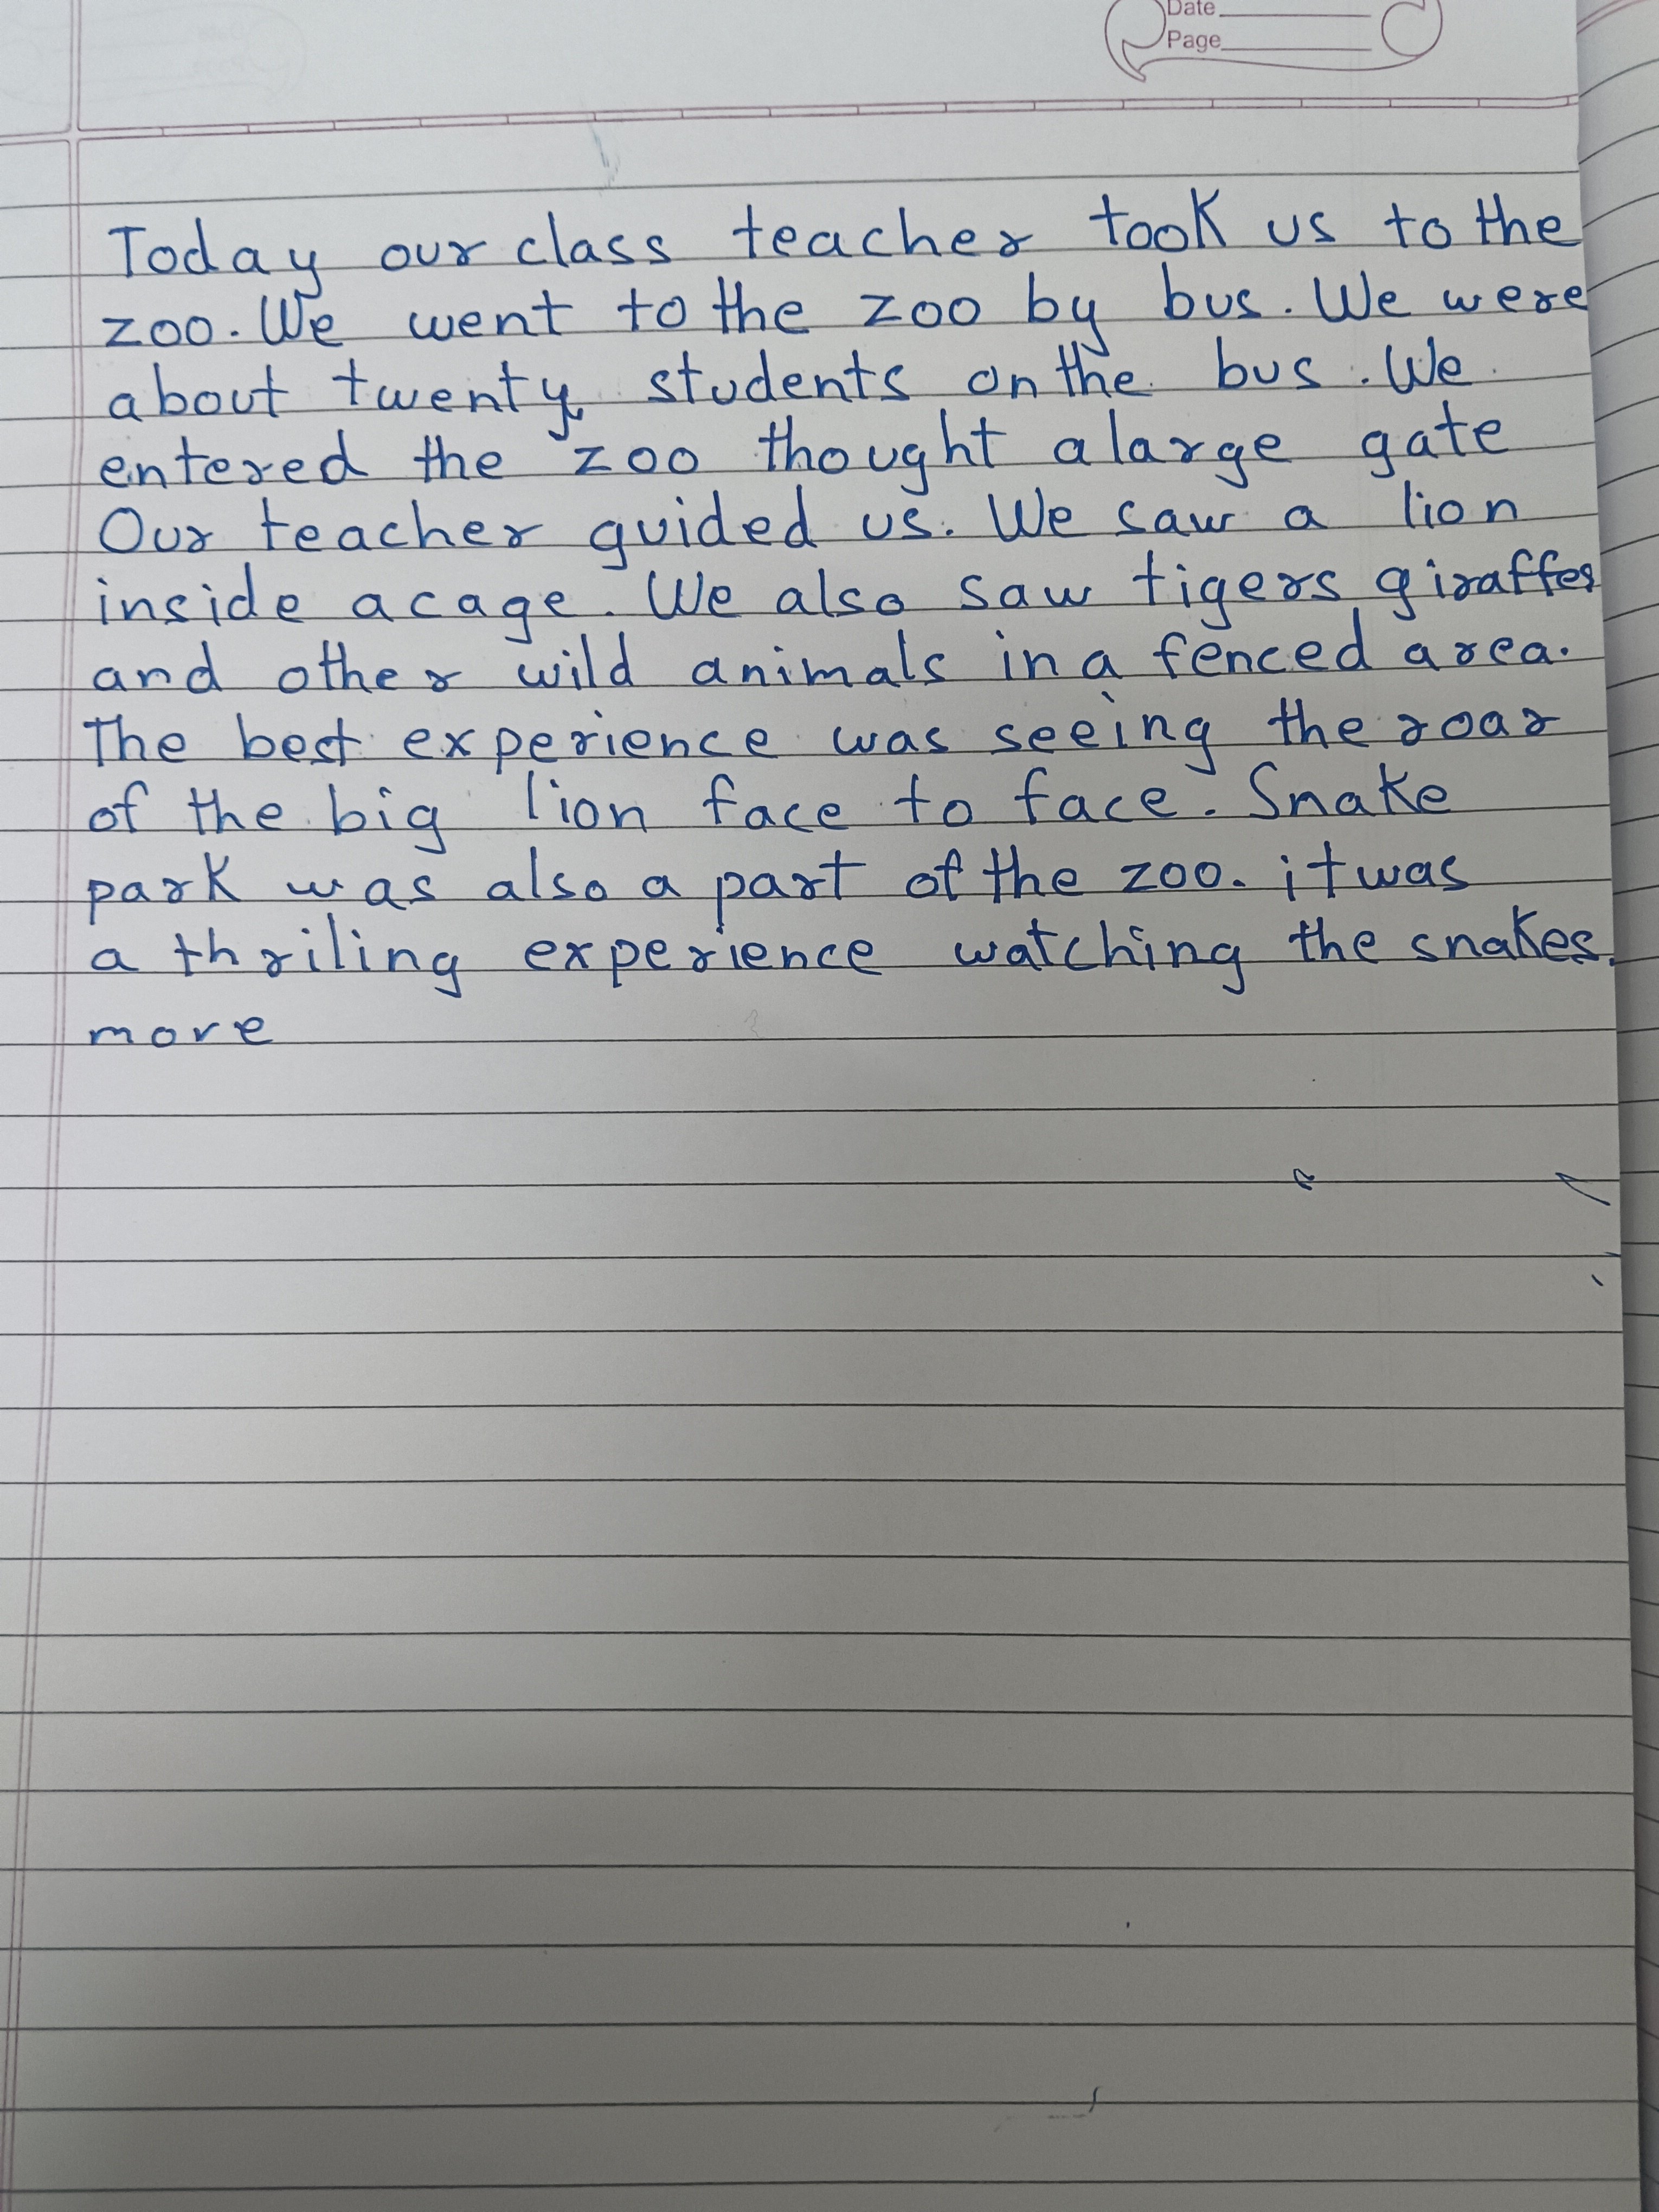 Date
Page
Today our class teacher took us to the
zoo. We went to the zoo by bus. We were
about twenty students on the bus. We
entered the zoo thought a large gate
Our teacher guided us. We saw a lion
inside a cage. We also saw tigers, giraffes
and other wild animals in a fenced area.
The best experience was seeing the roar
of the big lion face to face. Snake
park was also a part of the zoo. it was
a thriling experience watching the snakes.
more